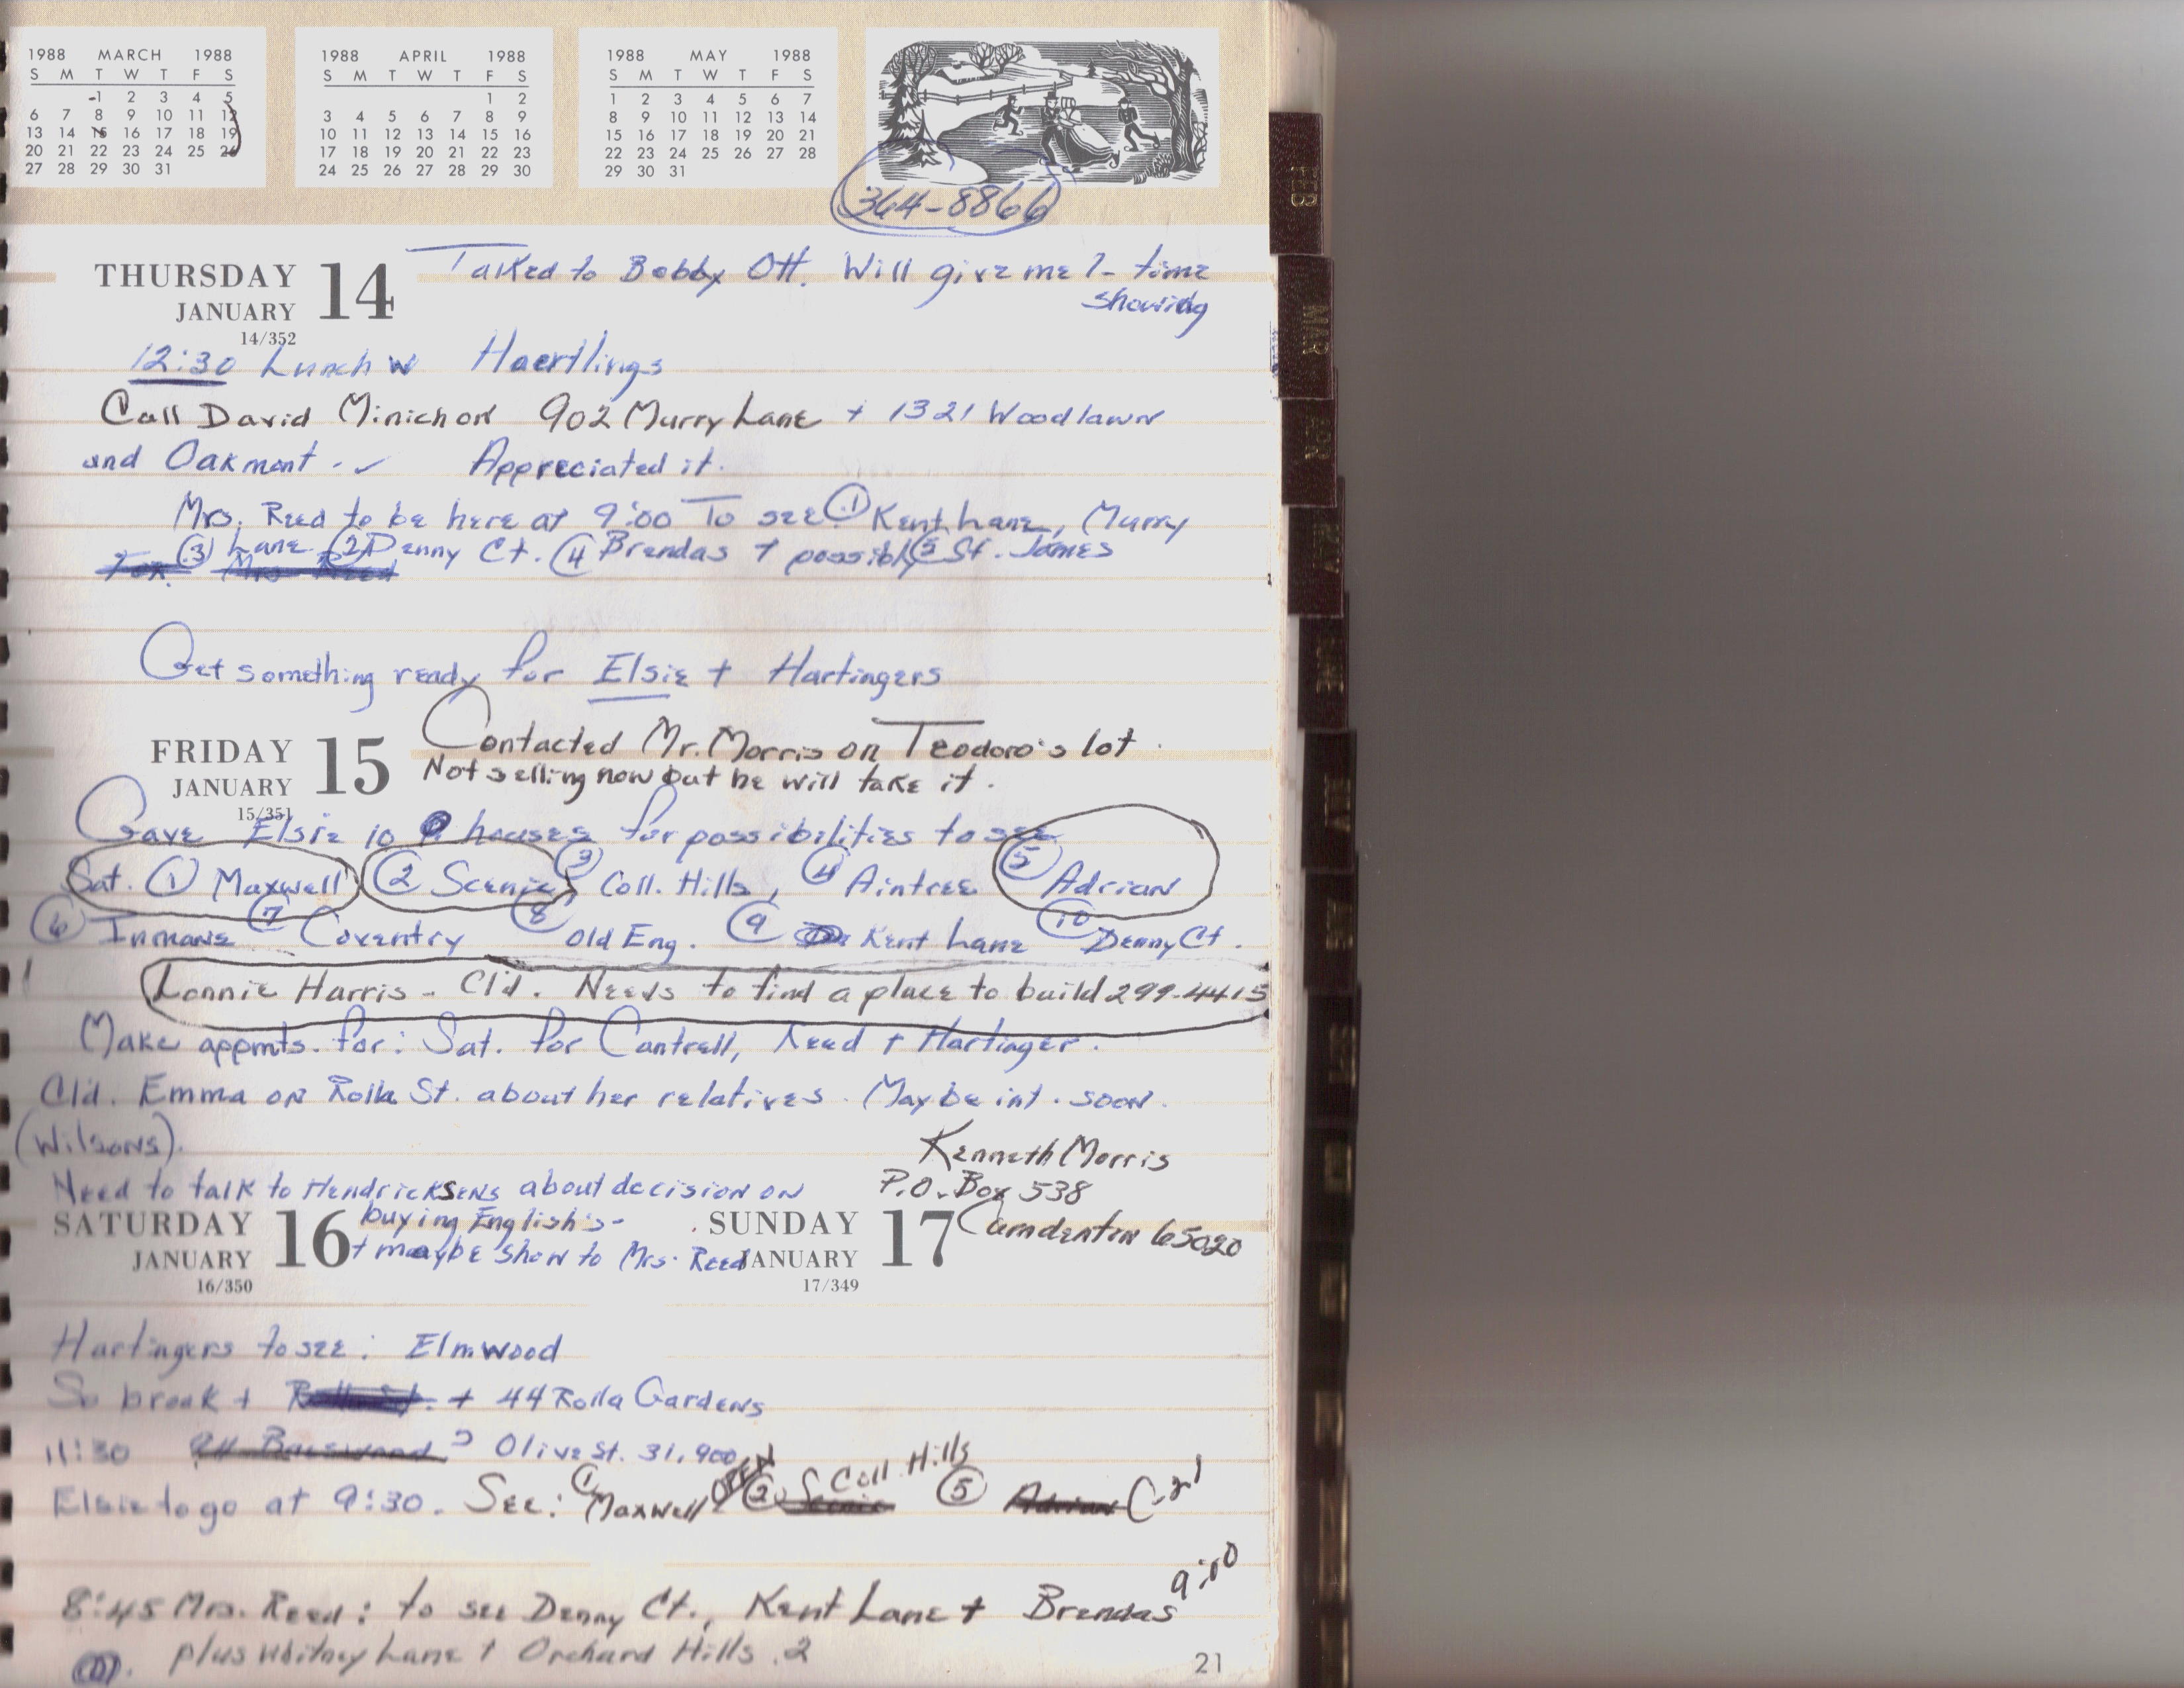 1988 MARCH 1988
S M T W T F S
1 2 3 4 5
6 7 8 9 10 11 12
13 14 15 16 17 18 19
20 21 22 23 24 25 26
27 28 29 30 31
1988 APRIL 1988
S M T W T F S
1 2
3 4 5 6 7 8 9
10 11 12 13 14 15 16
17 18 19 20 21 22 23
24 25 26 27 28 29 30
1988 MAY 1988
S M T W T F S
1 2 3 4 5 6 7
8 9 10 11 12 13 14
15 16 17 18 19 20 21
22 23 24 25 26 27 28
29 30 31
364-8866
THURSDAY 14
JANUARY
14/352
Talked to Bobby Ott. Will give me 1-time
showing
12:30 Lunch w Haertlings
Call David Minich on 902 Murry Lane + 1321 Woodlawn
and Oakmont - ✓ Appreciated it.
Mrs. Reed to be here at 9:00 To see: ① Kent Lane, Murry
③ Lane ② Denny Ct. ④ Brendas + possibly ⑤ St. James
Get something ready for Elsie + Hartingers
FRIDAY 15
JANUARY
15/351
Contacted Mr. Morris on Teodoro's lot.
Not selling now but he will take it.
Gave Elsie 10 houses for possibilities to see
Sat. ① Maxwell ② Scenic, ③ Coll. Hills, ④ Aintree ⑤ Adrian
⑥ Inmans ⑦ Coventry ⑧ Old Eng. ⑨ Kent Lane ⑩ Denny Ct.
Lonnie Harris - Cld. Needs to find a place to build 299-4415
Make appmts. for: Sat. for Cantrell, Reed + Hartinger.
Cld. Emma on Rolla St. about her relatives. Maybe int. soon.
(Wilsons).
Kenneth Morris
P.O. Box 538
Camdenton 65020
Need to talk to Hendricksens about decision on
buying English's-
+ maybe show to Mrs. Reed
SATURDAY 16
JANUARY
16/350
SUNDAY 17
JANUARY
17/349
Hartingers to see: Elmwood
So brook + + 44 Rolla Gardens
11:30 Olive St. 31,900
Elsie to go at 9:30. See: ① Maxwell OPEN ② Scenic Coll. Hills ⑤ Adrian
9:00
8:45 Mrs. Reed: to see Denny Ct., Kent Lane + Brendas
plus Whitney Lane + Orchard Hills. 2
21
FEB
MAR
APR
MAY
JUNE